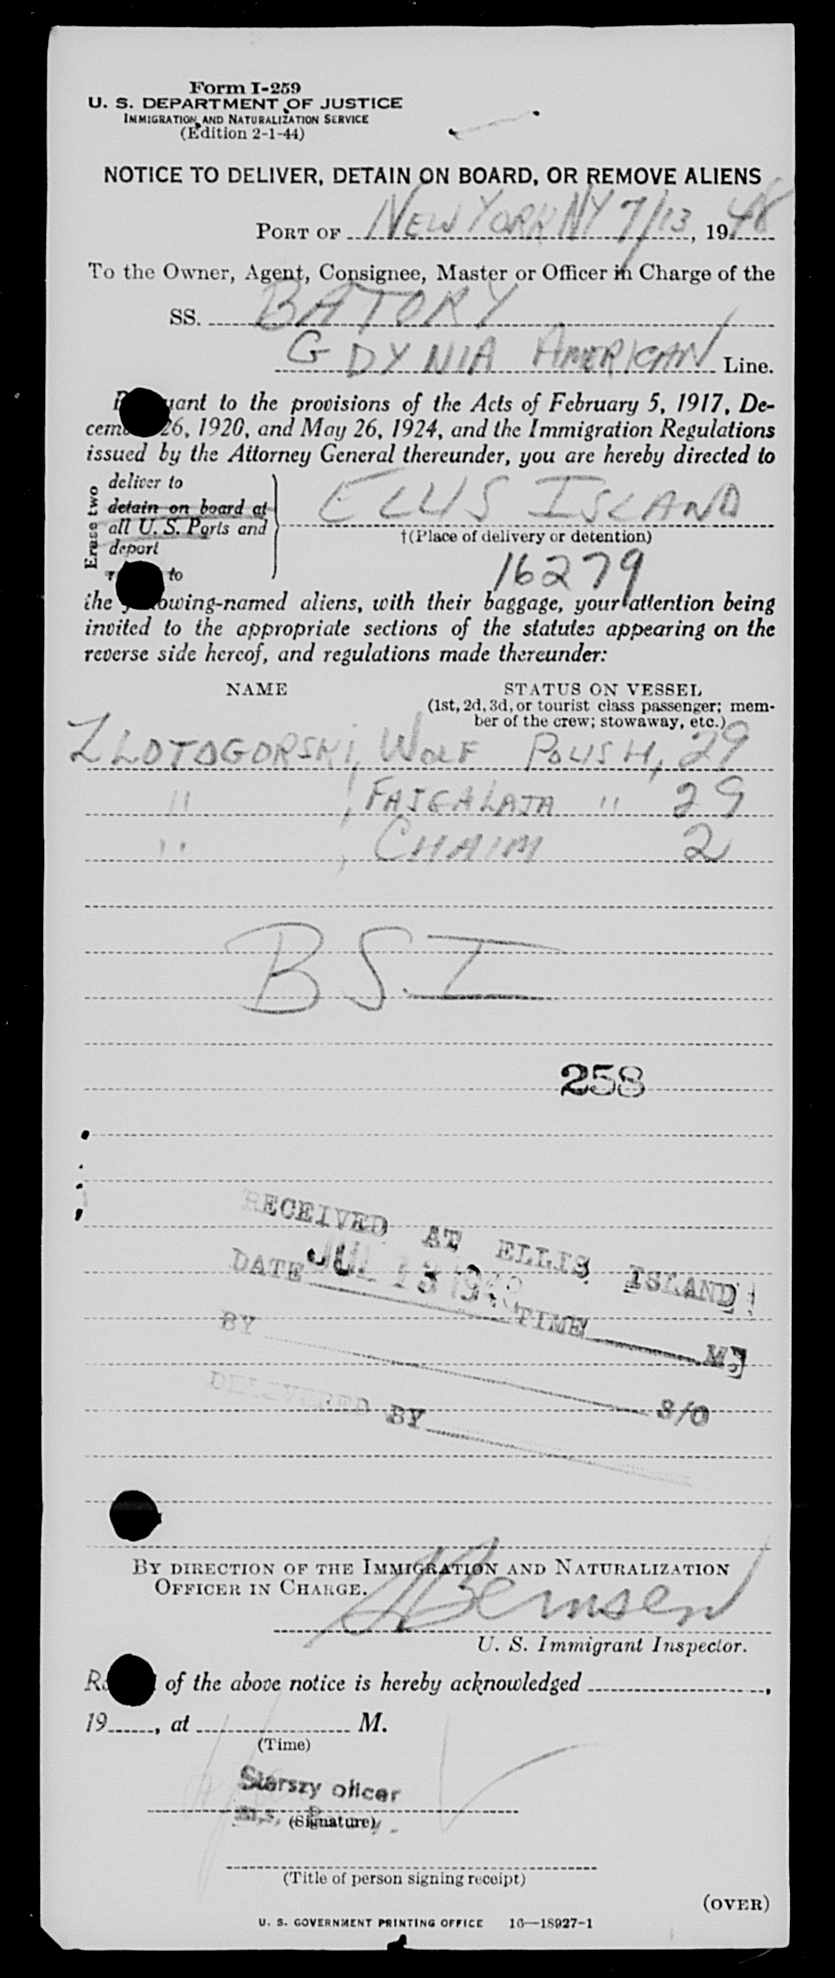 Form I-259
U. S. DEPARTMENT OF JUSTICE
IMMIGRATION AND NATURALIZATION SERVICE
(Edition 2-1-44)
NOTICE TO DELIVER, DETAIN ON BOARD, OR REMOVE ALIENS
PORT OF NEW YORK NY 7/13, 1948
To the Owner, Agent, Consignee, Master or Officer in Charge of the
SS. BATORY
GDYNIA AMERICAN Line.
uant to the provisions of the Acts of February 5, 1917, De-
cem 26, 1920, and May 26, 1924, and the Immigration Regulations
issued by the Attorney General thereunder, you are hereby directed to
Erase two
deliver to
detain on board at
all U. S. Ports and
deport
to
ELLIS ISLAND
†(Place of delivery or detention)
16279
the owing-named aliens, with their baggage, your attention being
invited to the appropriate sections of the statutes appearing on the
reverse side hereof, and regulations made thereunder:
NAME STATUS ON VESSEL
(1st, 2d, 3d, or tourist class passenger; mem-
ber of the crew; stowaway, etc.)
ZLOTOGORSKI, WOLF POLISH, 29
" , FAJGA LAJA " 29
" , CHAIM 2
BSI
258
RECEIVED AT ELLIS ISLAND
DATE JUL 13 1948 TIME M.
BY
S/O
DELIVERED BY
BY DIRECTION OF THE IMMIGRATION AND NATURALIZATION
OFFICER IN CHARGE.
U. S. Immigrant Inspector.
of the above notice is hereby acknowledged ,
19 , at M.
(Time)
Starszy oficer
m.s.
(Signature)
(Title of person signing receipt)
(OVER)
U. S. GOVERNMENT PRINTING OFFICE 16—18927-1